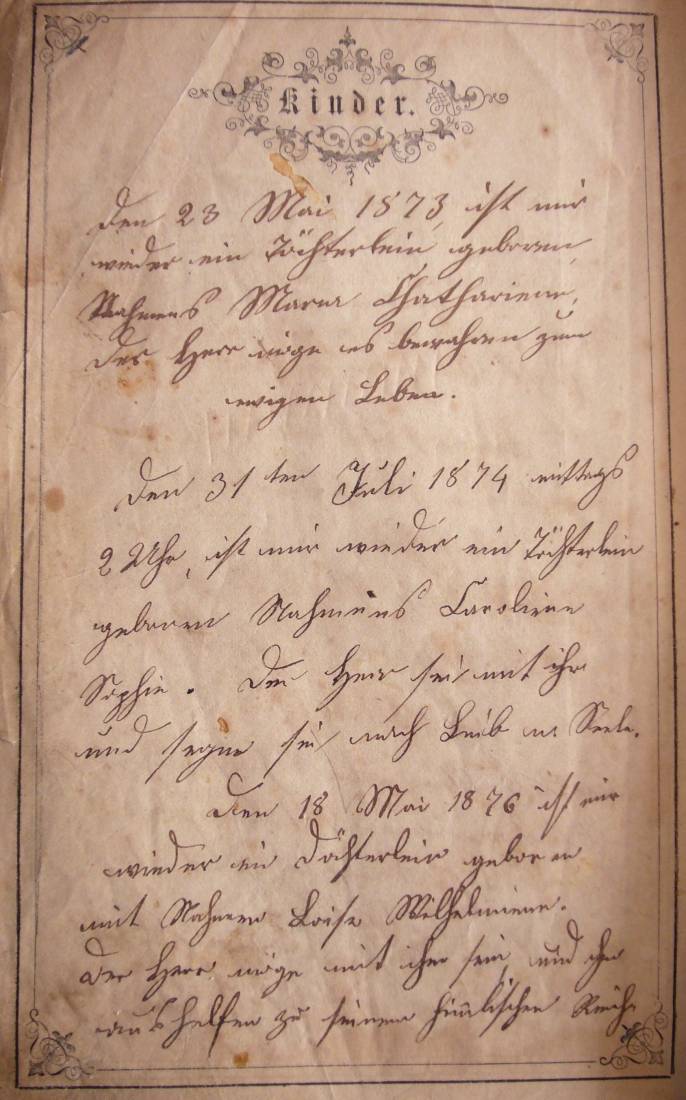 Kinder.
Den 23 Mai 1873, ist mir
wieder ein Töchterlein geboren,
Nahmens Maria Chathariene,
Der Herr möge es bewahren zum
ewigen Leben.
Den 31ten Juli 1874 mittags
2 Uhr, ist mir wieder ein Töchterlein
geboren Nahmens Caroliene
Sophie. Der Herr sei mit ihr
und segne sei nach Leib u Seele.
Den 18 Mai 1876 ist mir
wieder ein Döchterlein geboren
mit Nahmen Loise Wilhelmiene.
Der Herr möge mit ihr sein, und ihr
aushelfen zu seinem himlischen Reich